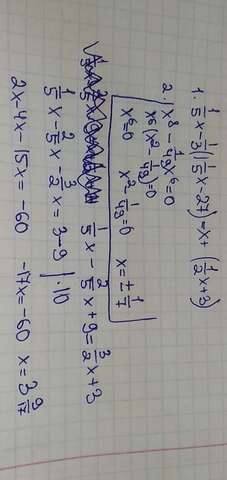 1. 1/5x - 1/3(1 1/5x - 27) = x + (1/2x + 3)
2. x⁸ - 1/49x⁶ = 0
x⁶(x² - 1/49) = 0
x⁶ = 0 x² - 1/49 = 0 x = ± 1/7
1/5x - 2/5x + 9 = 3/2x + 3
1/5x - 2/5x - 3/2x = 3 - 9 | · 10
2x - 4x - 15x = -60 -17x = -60 x = 3 9/17